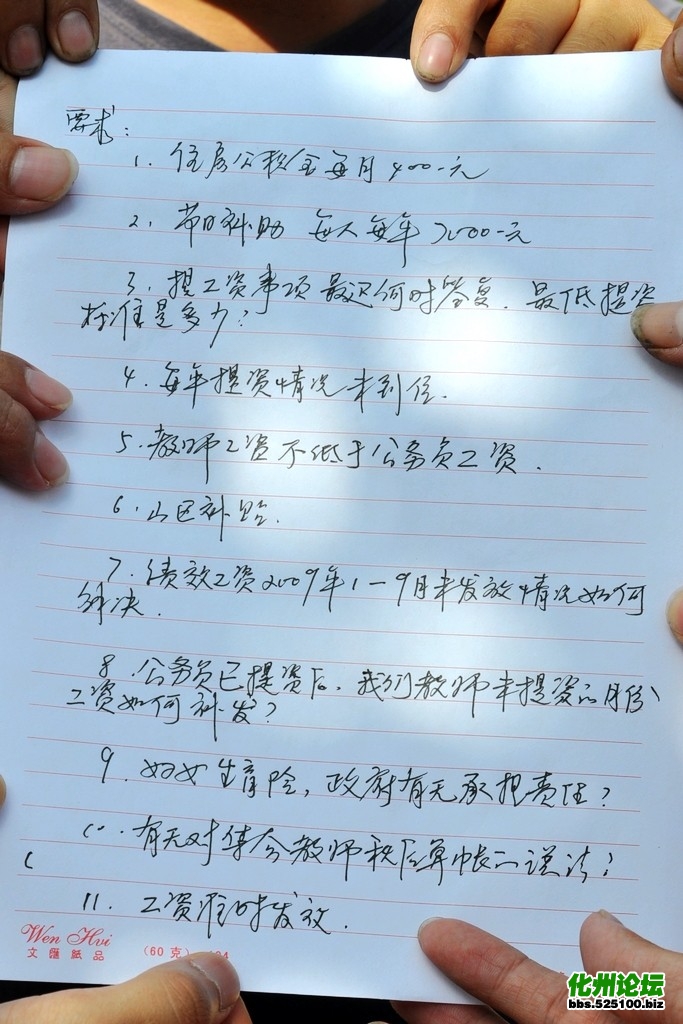 要求:
1. 住房公积金每月400-元
2. 节日补助 每人每年2000-元
3. 提工资事项最迟何时答复. 最低提资
标准是多少?
4. 每年提资情况未到位.
5. 教师工资不低于公务员工资.
6. 山区补贴.
7. 绩效工资2009年1-9月未发放情况如何
解决.
8. 公务员已提资后, 我们教师未提资的月份
工资如何补发?
9. 妇女生育险, 政府有无承担责任?
10. 有无对集会教师秋后算帐的说法?
11. 工资准时发放.
Wen Hvi
文匯紙品
(60克)
化州论坛
bbs.525100.biz